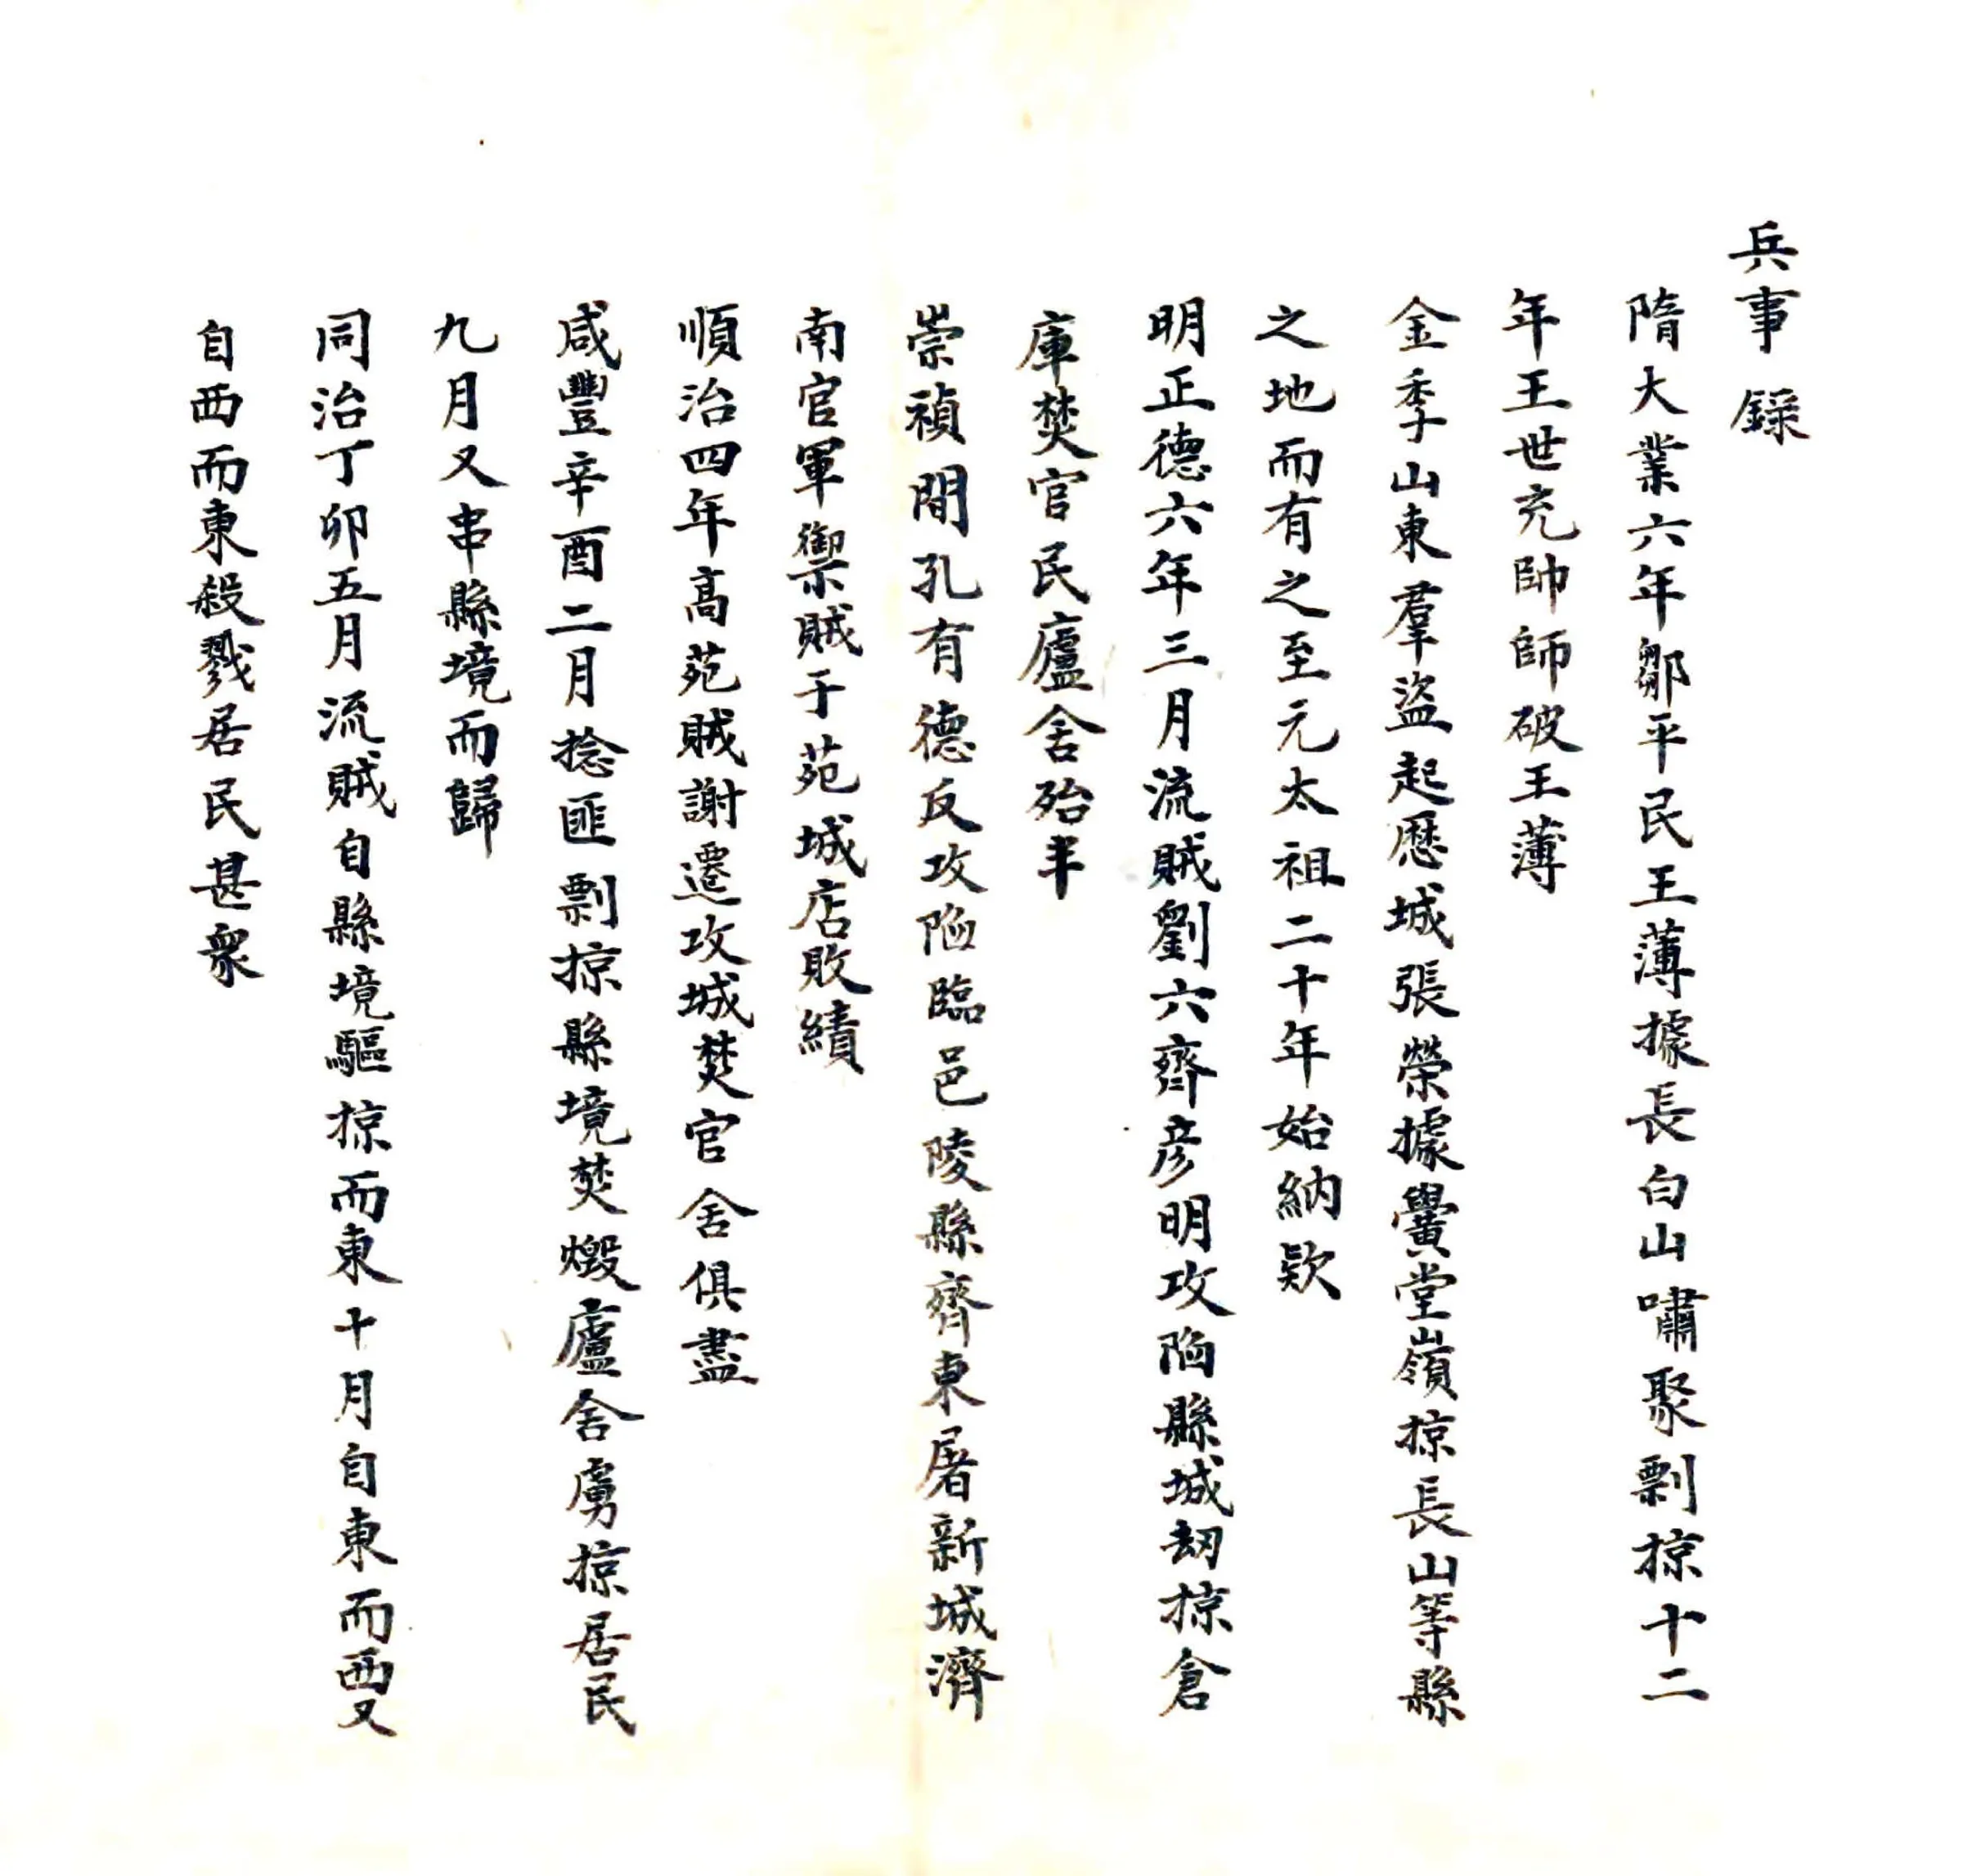 兵事錄
隋大業六年鄒平民王薄據長白山嘯聚剽掠十二
年王世充帥師破王薄
金季山東羣盜起歷城張榮據黌堂嶺掠長山等縣
之地而有之至元太祖二十年始納欵
明正德六年三月流賊劉六齊彦明攻陷縣城刼掠倉
庫焚官民廬舍殆半
崇禎間孔有德反攻陷臨邑陵縣齊東屠新城濟
南官軍禦賊于苑城店敗績
順治四年高苑賊謝遷攻城焚官舍俱盡
咸豐辛酉二月捻匪剽掠縣境焚燬廬舍虜掠居民
九月又串縣境而歸
同治丁卯五月流賊自縣境驅掠而東十月自東而西又
自西而東殺戮居民甚衆